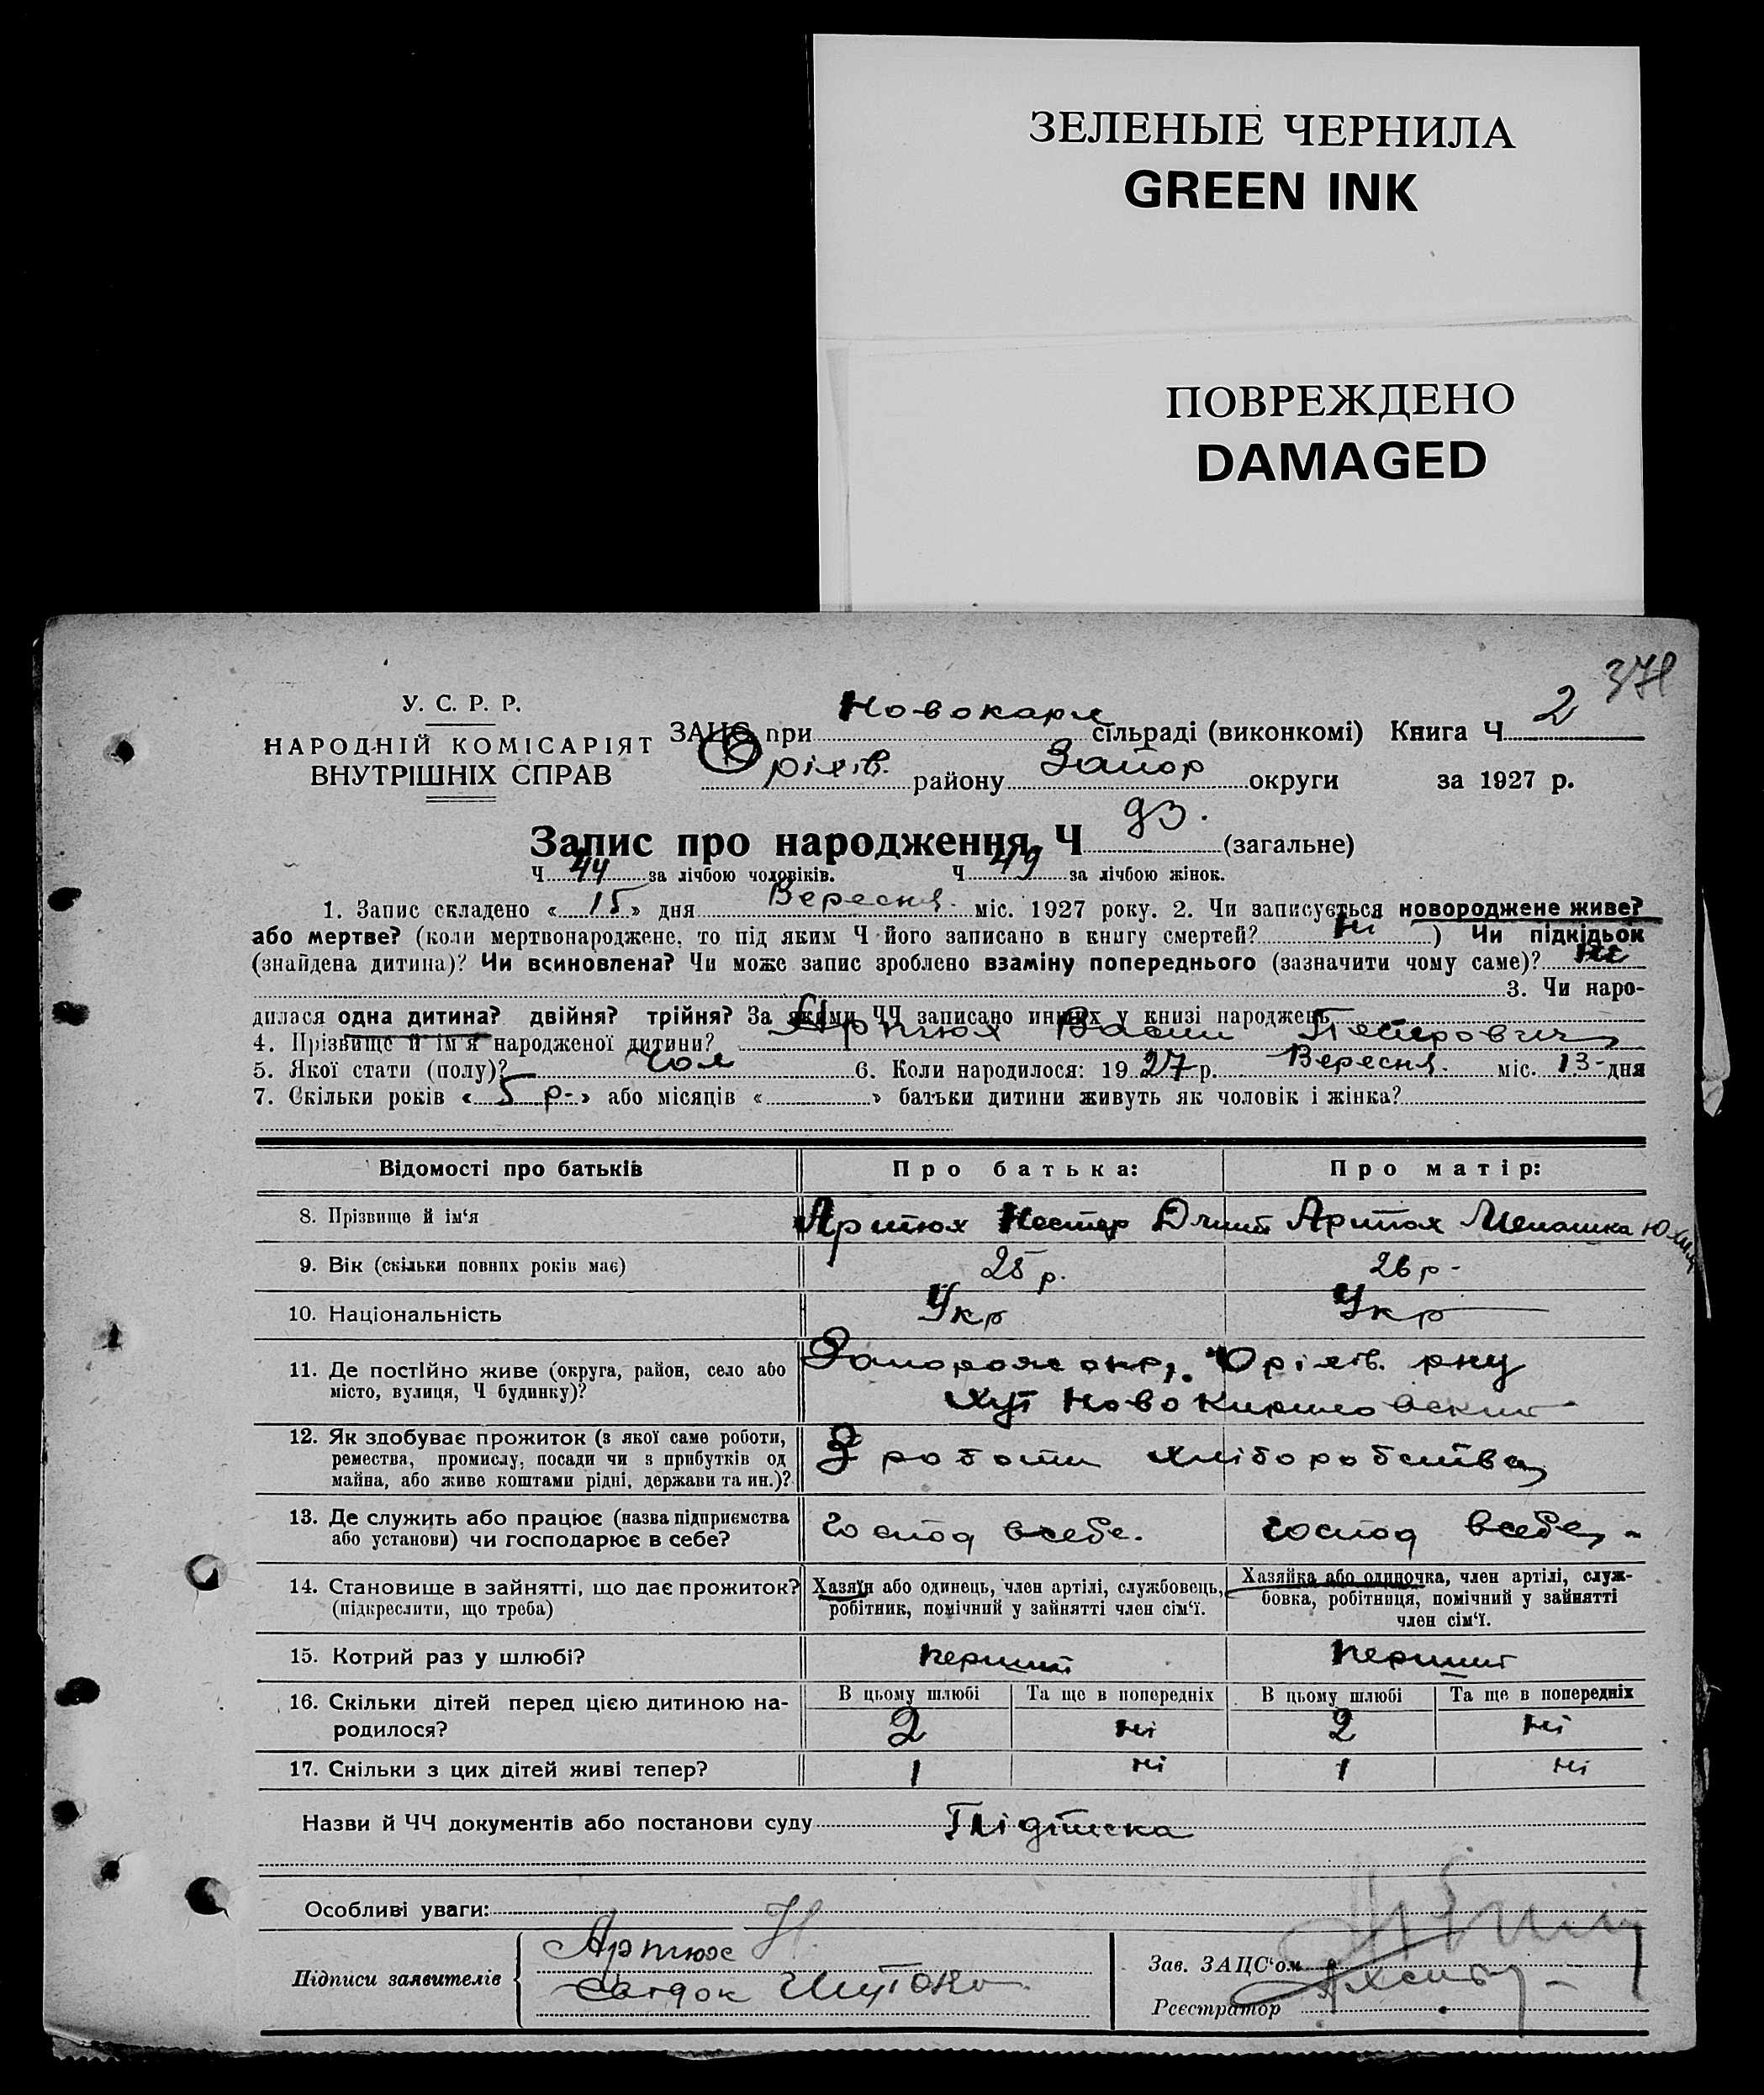 ЗЕЛЕНЫЕ ЧЕРНИЛА
GREEN INK
ПОВРЕЖДЕНО
DAMAGED
У. С. Р. Р.
НАРОДНІЙ КОМІСАРІЯТ
ВНУТРІШНІХ СПРАВ
ЗАЦС при Новокарл сільраді (виконкомі) Книга Ч 2
Оріхів. району Запор округи за 1927 р.
Запис про народження Ч 93. (загальне)
Ч 44 за лічбою чоловіків. Ч 49 за лічбою жінок.
1. Запис складено « 15 » дня Вересня. міс. 1927 року. 2. Чи записується новороджене живе?
або мертве? (коли мертвонароджене, то під яким Ч його записано в книгу смертей? Ні ) Чи підкідьок
(знайдена дитина)? Чи всиновлена? Чи може запис зроблено взаміну попереднього (зазначити чому саме)? Ні
3. Чи наро-
дилася одна дитина? двійня? трійня? За якими ЧЧ записано инших у книзі народжень
4. Прізвище й ім'я народженої дитини? Артюх
5. Якої стати (полу)? Чол 6. Коли народилося: 1927 р. Вересня. міс. 13 - дня
7. Скільки років « 5 р. » або місяців « » батьки дитини живуть як чоловік і жінка?
Відомості про батьків Про батька: Про матір:
8. Прізвище й ім‘я Артюх Нестер Артюх
9. Вік (скільки повних років має) 25 р. 26 р -
10. Національність Укр Укр
11. Де постійно живе (округа, район, село або Запорож окр, Оріхів. рну
місто, вулиця, Ч будинку)? Хут
12. Як здобуває прожиток (з якої саме роботи, З роботи хліборобства
ремества, промислу, посади чи з прибутків од
майна, або живе коштами рідні, держави та ин.)?
13. Де служить або працює (назва підприємства Господ всебе. Господ всебе, -
або установи) чи господарює в себе?
14. Становище в зайнятті, що дає прожиток? Хазяїн або одинець, член артілі, службовець, Хазяйка або одиночка, член артілі, служ-
(підкреслити, що треба) робітник, помічний у зайнятті член сім‘ї. бовка, робітниця, помічний у зайнятті
член сім‘ї.
15. Котрий раз у шлюбі? перший перший
16. Скільки дітей перед цією дитиною на- В цьому шлюбі Та ще в попередніх В цьому шлюбі Та ще в попередніх
родилося? 2 ні 2 ні
17. Скільки з цих дітей живі тепер? 1 ні 1 ні
Назви й ЧЧ документів або постанови суду Підписка
Особливі уваги:
Підписи заявителів Артюх Н
Свідок
Зав. ЗАЦС‘ом
Реєстратор